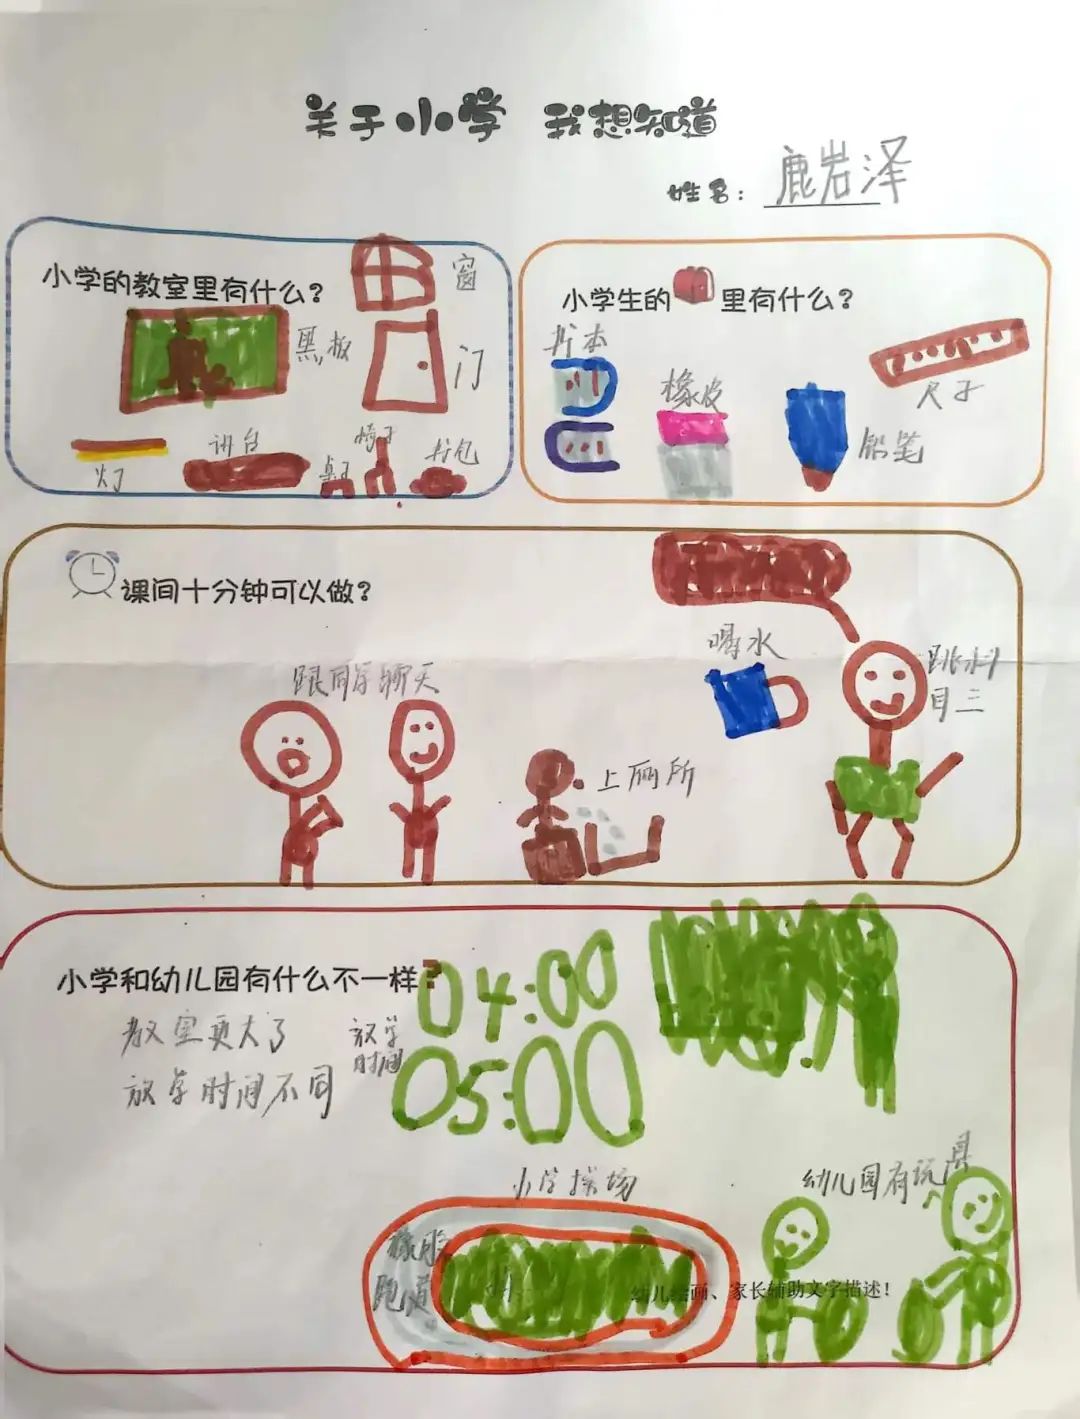 关于小学 我想知道
姓名：鹿岩泽
小学的教室里有什么？
窗
黑板
门
灯
讲台
桌子
椅子
书包
小学生的里有什么？
书本
橡皮
铅笔
尺子
课间十分钟可以做？
跟同学聊天
上厕所
喝水
跳科
目三
小学和幼儿园有什么不一样？
教室更大了
放学时间不同
放学
时间
04:00
05:00
小学操场
橡胶
跑道
幼儿园有玩具
幼儿绘画、家长辅助文字描述！